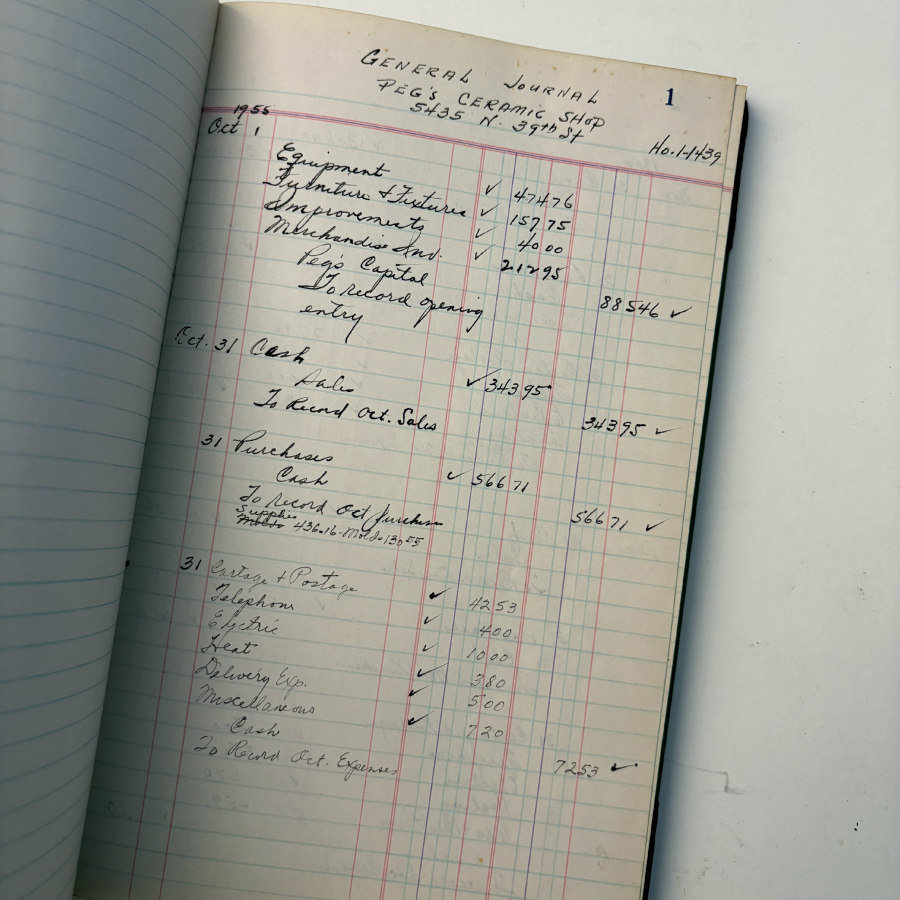 GENERAL JOURNAL 1
PEG'S CERAMIC SHOP
5435 N. 39th St
Ho.1-1439
1955
Oct 1
Equipment ✓ 474 76
Furniture + Fixtures ✓ 157 75
Improvements ✓ 40 00
Merchandise Inv. ✓ 212 95
Peg's Capital 885 46 ✓
To record opening
entry
Oct. 31 Cash ✓ 343 95
Sales 343 95 ✓
To Record Oct. Sales
31 Purchases ✓ 566 71
Cash 566 71 ✓
To record Oct Purchases
Supplies
Molds 436.16 - Molds 130 55
31 Cartage + Postage ✓ 42 53
Telephone ✓ 4 00
Electric ✓ 10 00
Heat ✓ 3 80
Delivery Exp. ✓ 5 00
Miscellaneous ✓ 7 20
Cash 72 53 ✓
To Record Oct. Expenses